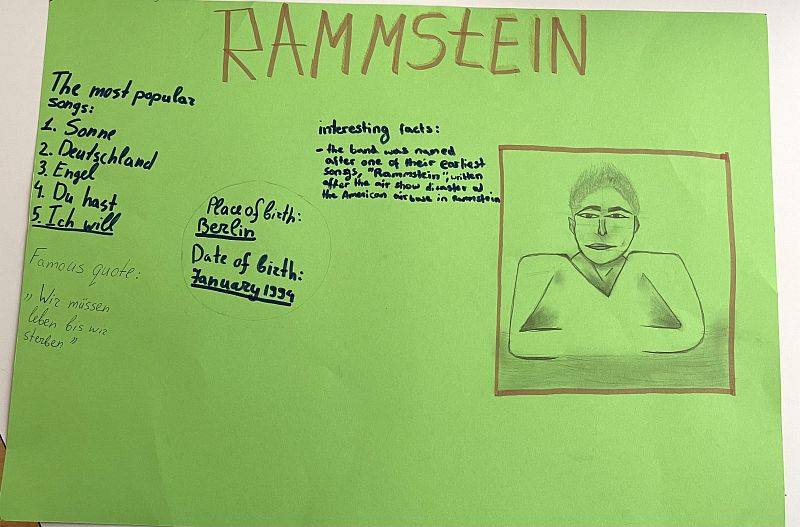 RAMMStEIN
The most popular
songs:
1. Sonne
2. Deutschland
3. Engel
4. Du hast
5. Ich will
Famous quote:
„Wir müssen
leben bis wir
sterben”
Place of birth:
Berlin
Date of birth:
January 1994
interesting facts:
- the band was named
after one of their earliest
songs, "Rammstein", written
after the air show disaster at
the American airbase in Ramstein